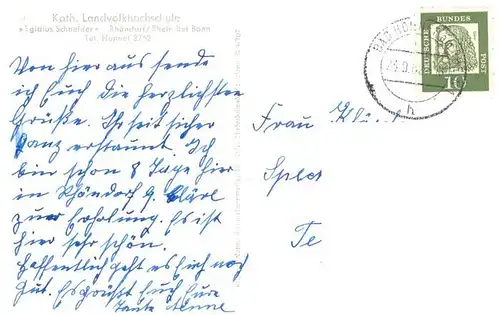 Kath. Landvolkhochschule
»Egidius Schneider« Rhöndorf/Rhein bei Bonn
Tel. Honnef 3752
Von hier aus sende
ich Euch die herzlichsten
Grüße. Ihr seit sicher
ganz erstaunt. Ich
bin schon 8 Tage hier
in Rhöndorf
zur Erholung. Es ist
hier sehr schön.
Hoffentlich geht es Euch noch
gut. Es grüßt Euch Eure
Tante Anne
DEUTSCHE BUNDES POST
10
h
Frau